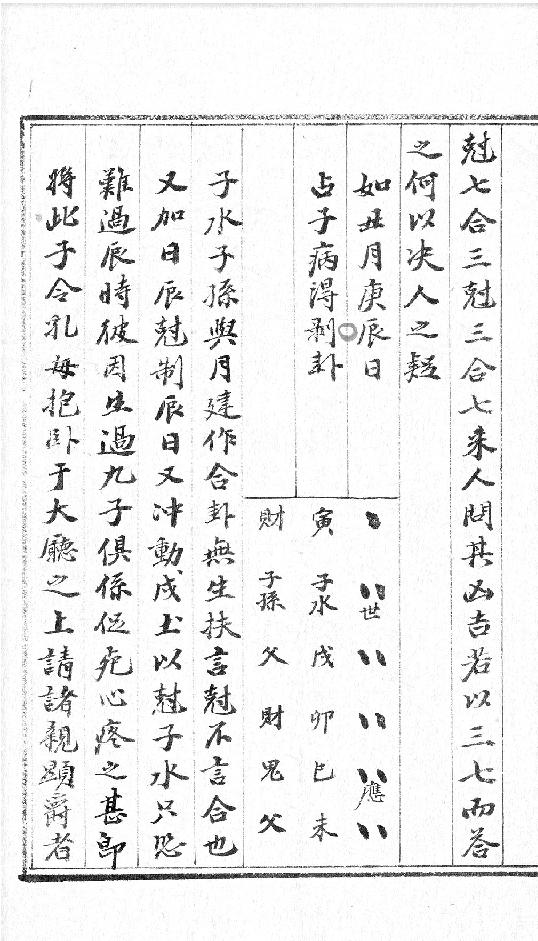 尅七合三尅三合七来人問其凶吉若以三七而答
之何以决人之疑
如丑月庚辰日
占子病得剥卦
世 應
寅 子水 戌 卯 巳 未
財 子孫 父 財 鬼 父
子水子孫與月建作合卦無生扶言尅不言合也
又加日辰尅制辰日又冲動戌土以尅子水只恐
難過辰時彼因生過九子俱係痘心疼之甚即
將此子令乳母抱卧于大廳之上請諸親顯爵者